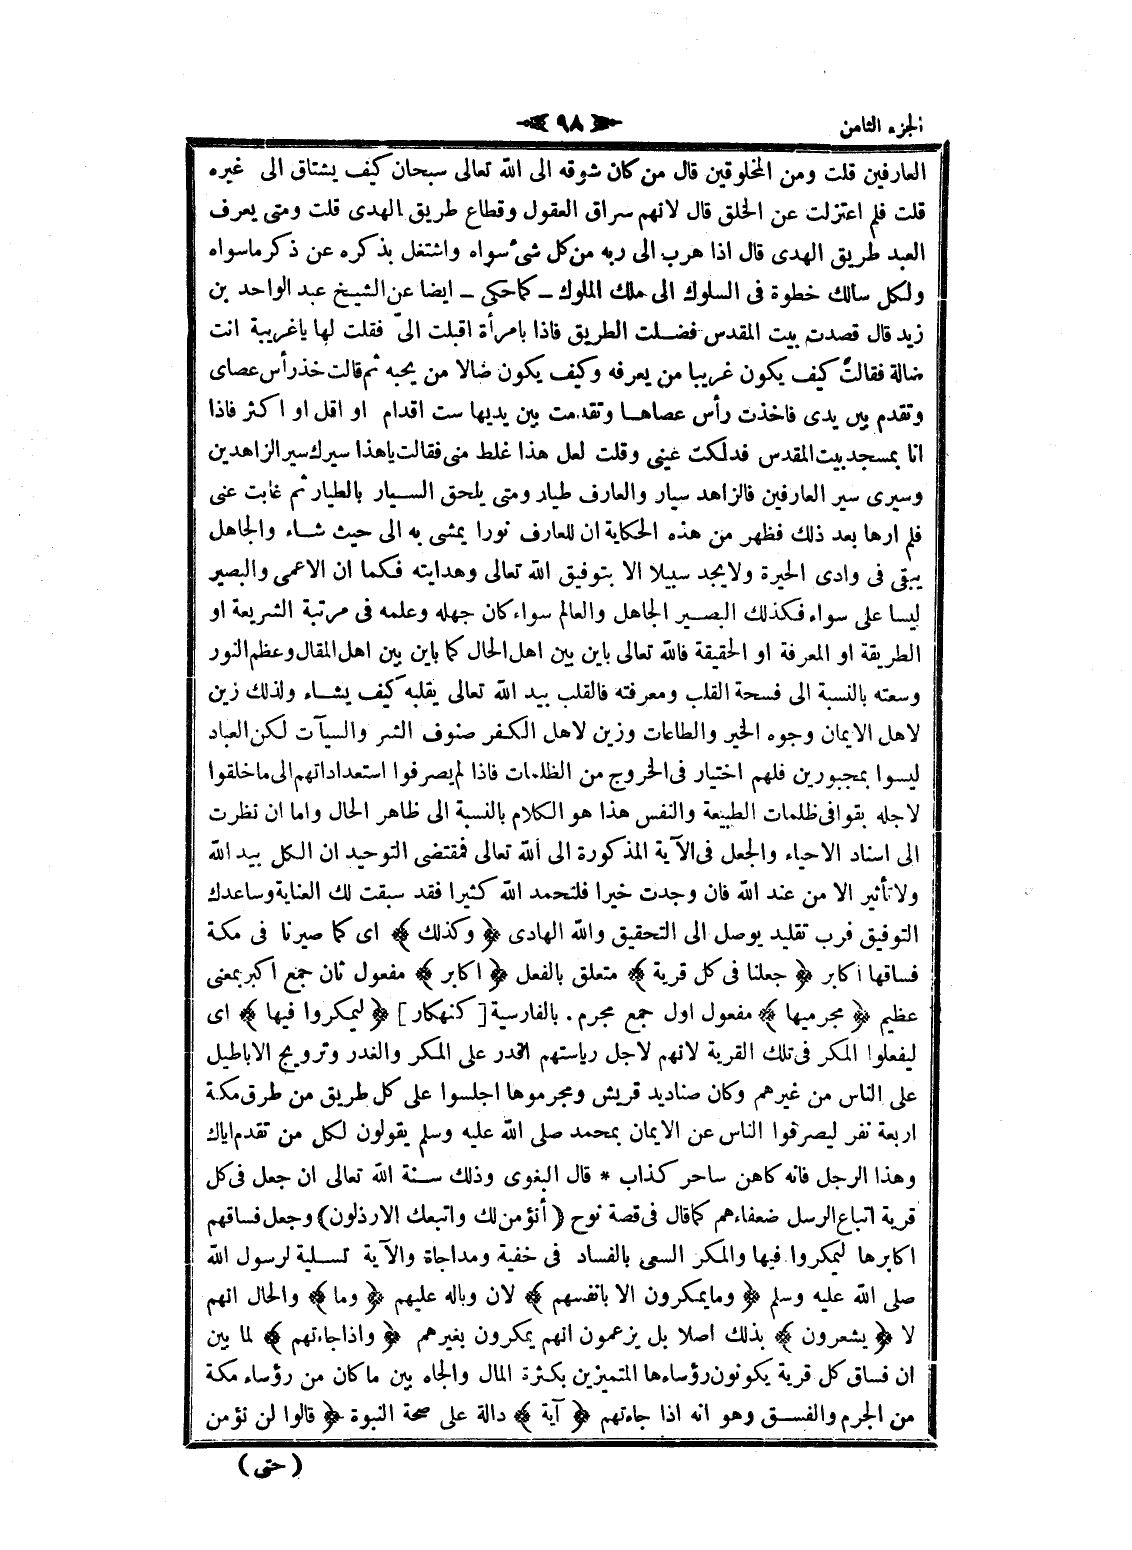 الجزء الثامن
٩٨
العارفين قلت ومن المخلوقين قال من كان شوقه الى الله تعالى سبحان كيف يشتاق الى غيره
قلت فلم اعتزلت عن الخلق قال لانهم سراق العقول وقطاع طريق الهدى قلت ومتى يعرف
العبد طريق الهدى قال اذا هرب الى ربه من كل شئ سواه واشتغل بذكره عن ذكر ماسواه
ولكل سالك خطوة فى السلوك الى ملك الملوك ـ كما حكى ـ ايضا عن الشيخ عبد الواحد بن
زيد قال قصدت بيت المقدس فضلت الطريق فاذا بامرأة اقبلت الىّ فقلت لها ياغريبة انت
ضالة فقالت كيف يكون غريبا من يعرفه وكيف يكون ضالا من يحبه ثم قالت خذ رأس عصاى
وتقدم بين يدى فاخذت رأس عصاها وتقدمت بين يديها ست اقدام او اقل او اكثر فاذا
انا بمسجد بيت المقدس فدلكت عينى وقلت لعل هذا غلط منى فقالت ياهذا سيرك سير الزاهدين
وسيرى سير العارفين فالزاهد سيار والعارف طيار ومتى يلحق السيار بالطيار ثم غابت عنى
فلم ارها بعد ذلك فظهر من هذه الحكاية ان للعارف نورا يمشى به الى حيث شاء والجاهل
يبقى فى وادى الحيرة ولايجد سبيلا الا بتوفيق الله تعالى وهدايته فكما ان الاعمى والبصير
ليسا على سواء فكذلك البصير الجاهل والعالم سواء كان جهله وعلمه فى مرتبة الشريعة او
الطريقة او المعرفة او الحقيقة فالله تعالى باين بين اهل الحال كما باين بين اهل المقال وعظم النور
وسعته بالنسبة الى فسحة القلب ومعرفته فالقلب بيد الله تعالى يقلبه كيف يشاء ولذلك زين
لاهل الايمان وجوه الخير والطاعات وزين لاهل الكفر صنوف الشر والسيآت لكن العباد
ليسوا بمجبورين فلهم اختيار فى الخروج من الظلمات فاذا لم يصرفوا استعداداتهم الى ماخلقوا
لاجله بقوا فى ظلمات الطبيعة والنفس هذا هو الكلام بالنسبة الى ظاهر الحال واما ان نظرت
الى اسناد الاحياء والجعل فى الآية المذكورة الى الله تعالى فمقتضى التوحيد ان الكل بيد الله
ولا تأثير الا من عند الله فان وجدت خيرا فلتحمد الله كثيرا فقد سبقت لك العناية وساعدك
التوفيق فرب تقليد يوصل الى التحقيق والله الهادى ﴿ وكذلك ﴾ اى كما صيرنا فى مكة
فساقها اكابر ﴿ جعلنا فى كل قرية ﴾ متعلق بالفعل ﴿ اكابر ﴾ مفعول ثان جمع اكبر بمعنى
عظيم ﴿ مجرميها ﴾ مفعول اول جمع مجرم . بالفارسية [ كنهكار ] ﴿ ليمكروا فيها ﴾ اى
ليفعلوا المكر فى تلك القرية لانهم لاجل رياستهم اقدر على المكر والغدر وترويج الاباطيل
على الناس من غيرهم وكان صناديد قريش ومجرموها اجلسوا على كل طريق من طرق مكة
اربعة نفر ليصرفوا الناس عن الايمان بمحمد صلى الله عليه وسلم يقولون لكل من تقدم اياك
وهذا الرجل فانه كاهن ساحر كذاب * قال البغوى وذلك سنة الله تعالى ان جعل فى كل
قرية اتباع الرسل ضعفاءهم كما قال فى قصة نوح ( أنؤمن لك واتبعك الارذلون ) وجعل فساقهم
اكابرها ليمكروا فيها والمكر السعى بالفساد فى خفية ومداجاة والآية تسلية لرسول الله
صلى الله عليه وسلم ﴿ وما يمكرون الا بانفسهم ﴾ لان وباله عليهم ﴿ وما ﴾ والحال انهم
لا ﴿ يشعرون ﴾ بذلك اصلا بل يزعمون انهم يمكرون بغيرهم ﴿ واذا جاءتهم ﴾ لما بين
ان فساق كل قرية يكونون رؤساءها المتميزين بكثرة المال والجاه بين ماكان من رؤساء مكة
من الجرم والفسق وهو انه اذا جاءتهم ﴿ آية ﴾ دالة على صحة النبوة ﴿ قالوا لن نؤمن
( حتى )